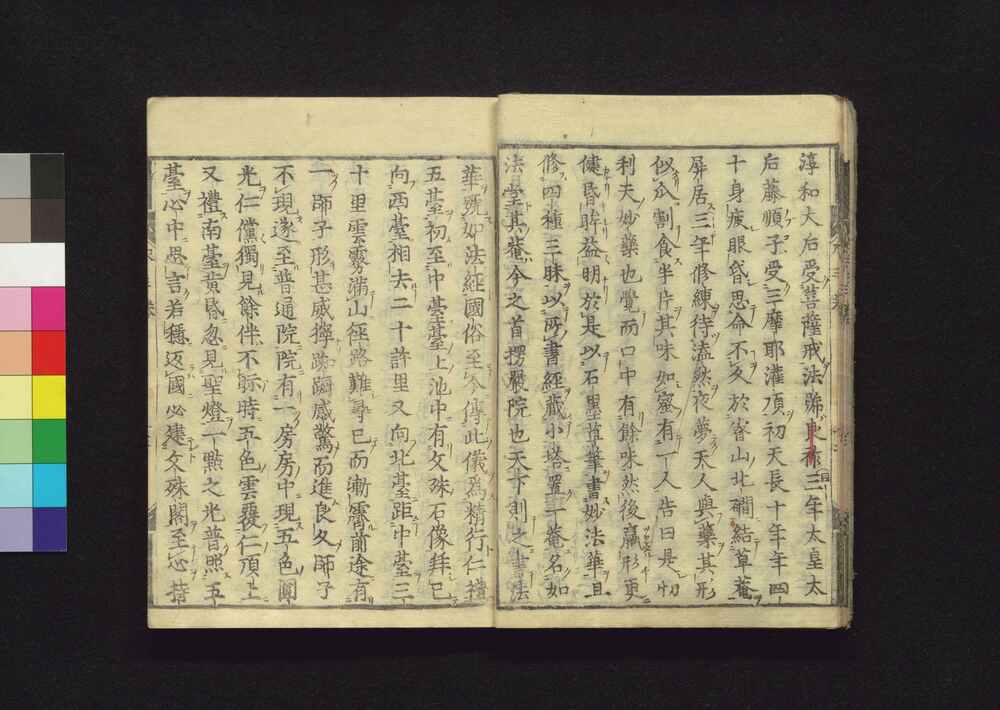 淳和大后受菩薩戒法號三年太皇太
后藤順子受三摩耶灌頂初天長十年年四
十身疲眼昏思命不久於睿山北磵結草菴
屏居三年修練待溘然夜夢天人與藥其形
似瓜割食半片其味如蜜有一人告曰是忉
利天妙藥也覺而口中有餘味然後羸形更
健昏眸益明於是以石墨草筆書妙法華且
修四種三昧以所書經藏小塔置一菴名如
法堂其菴今之首楞嚴院也天下則之書法
華號如法經國俗至今傳此儀爲精行仁禮
五臺初至中臺臺上池中有文殊石像拜已
向西臺相去二十許里又向北臺距中臺三
十里雲霧滿山徑路難尋已而漸霽前途有
一師子形甚威獰踟蹰感驚而進良久師子
不現遂至普通院院有一房房中現五色圓
光仁儻獨見餘伴不际時五色雲覆仁頂上
又禮南臺黃昏忽見聖燈一點之光普照五
臺心中思言若穩返國必建文殊閣至心持